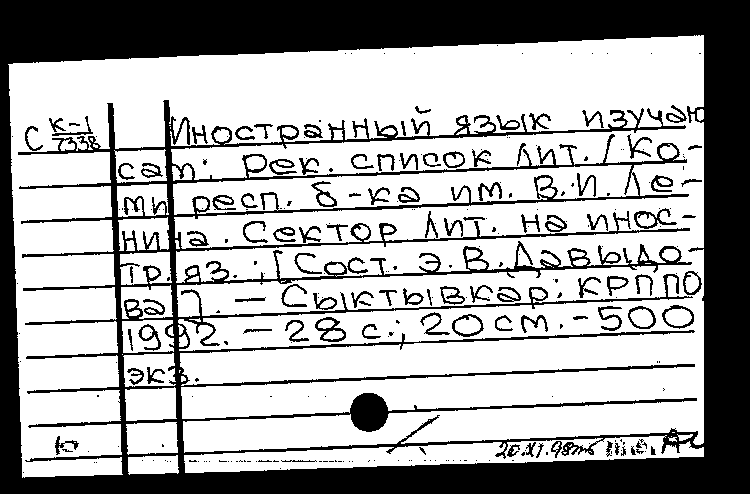 С К-1
7338
Иностранный язык изучаю
сам: Рек. список лит. / Ко-
ми респ. б-ка им. В.И. Ле-
нина. Сектор лит. на инос-
тр. яз.; [Сост. Э.В. Давыдо-
ва]. - Сыктывкар: КРППО,
1992. - 28 с.; 20 см. - 500
экз.
Ю
20.XI.98